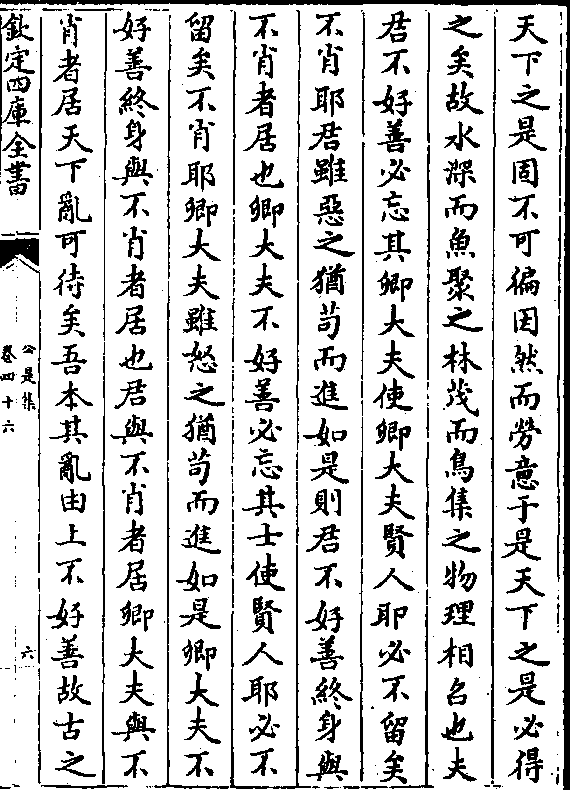 天下之是固不可徧因然而勞意于是天下之是必得
之矣故水深而魚聚之林茂而鳥集之物理相名也夫
君不好善必忘其卿大夫使卿大夫賢人耶必不留矣
不肖耶君雖惡之猶苟而進如是則君不好善終身與
不肖者居也卿大夫不好善必忘其士使賢人耶必不
留矣不肖耶卿大夫雖怒之猶苟而進如是卿大夫不
好善終身與不肖者居也君與不肖者居卿大夫與不
肖者居天下亂可待矣吾本其亂由上不好善故古之
欽定四庫全書
公是集
卷四十六
六